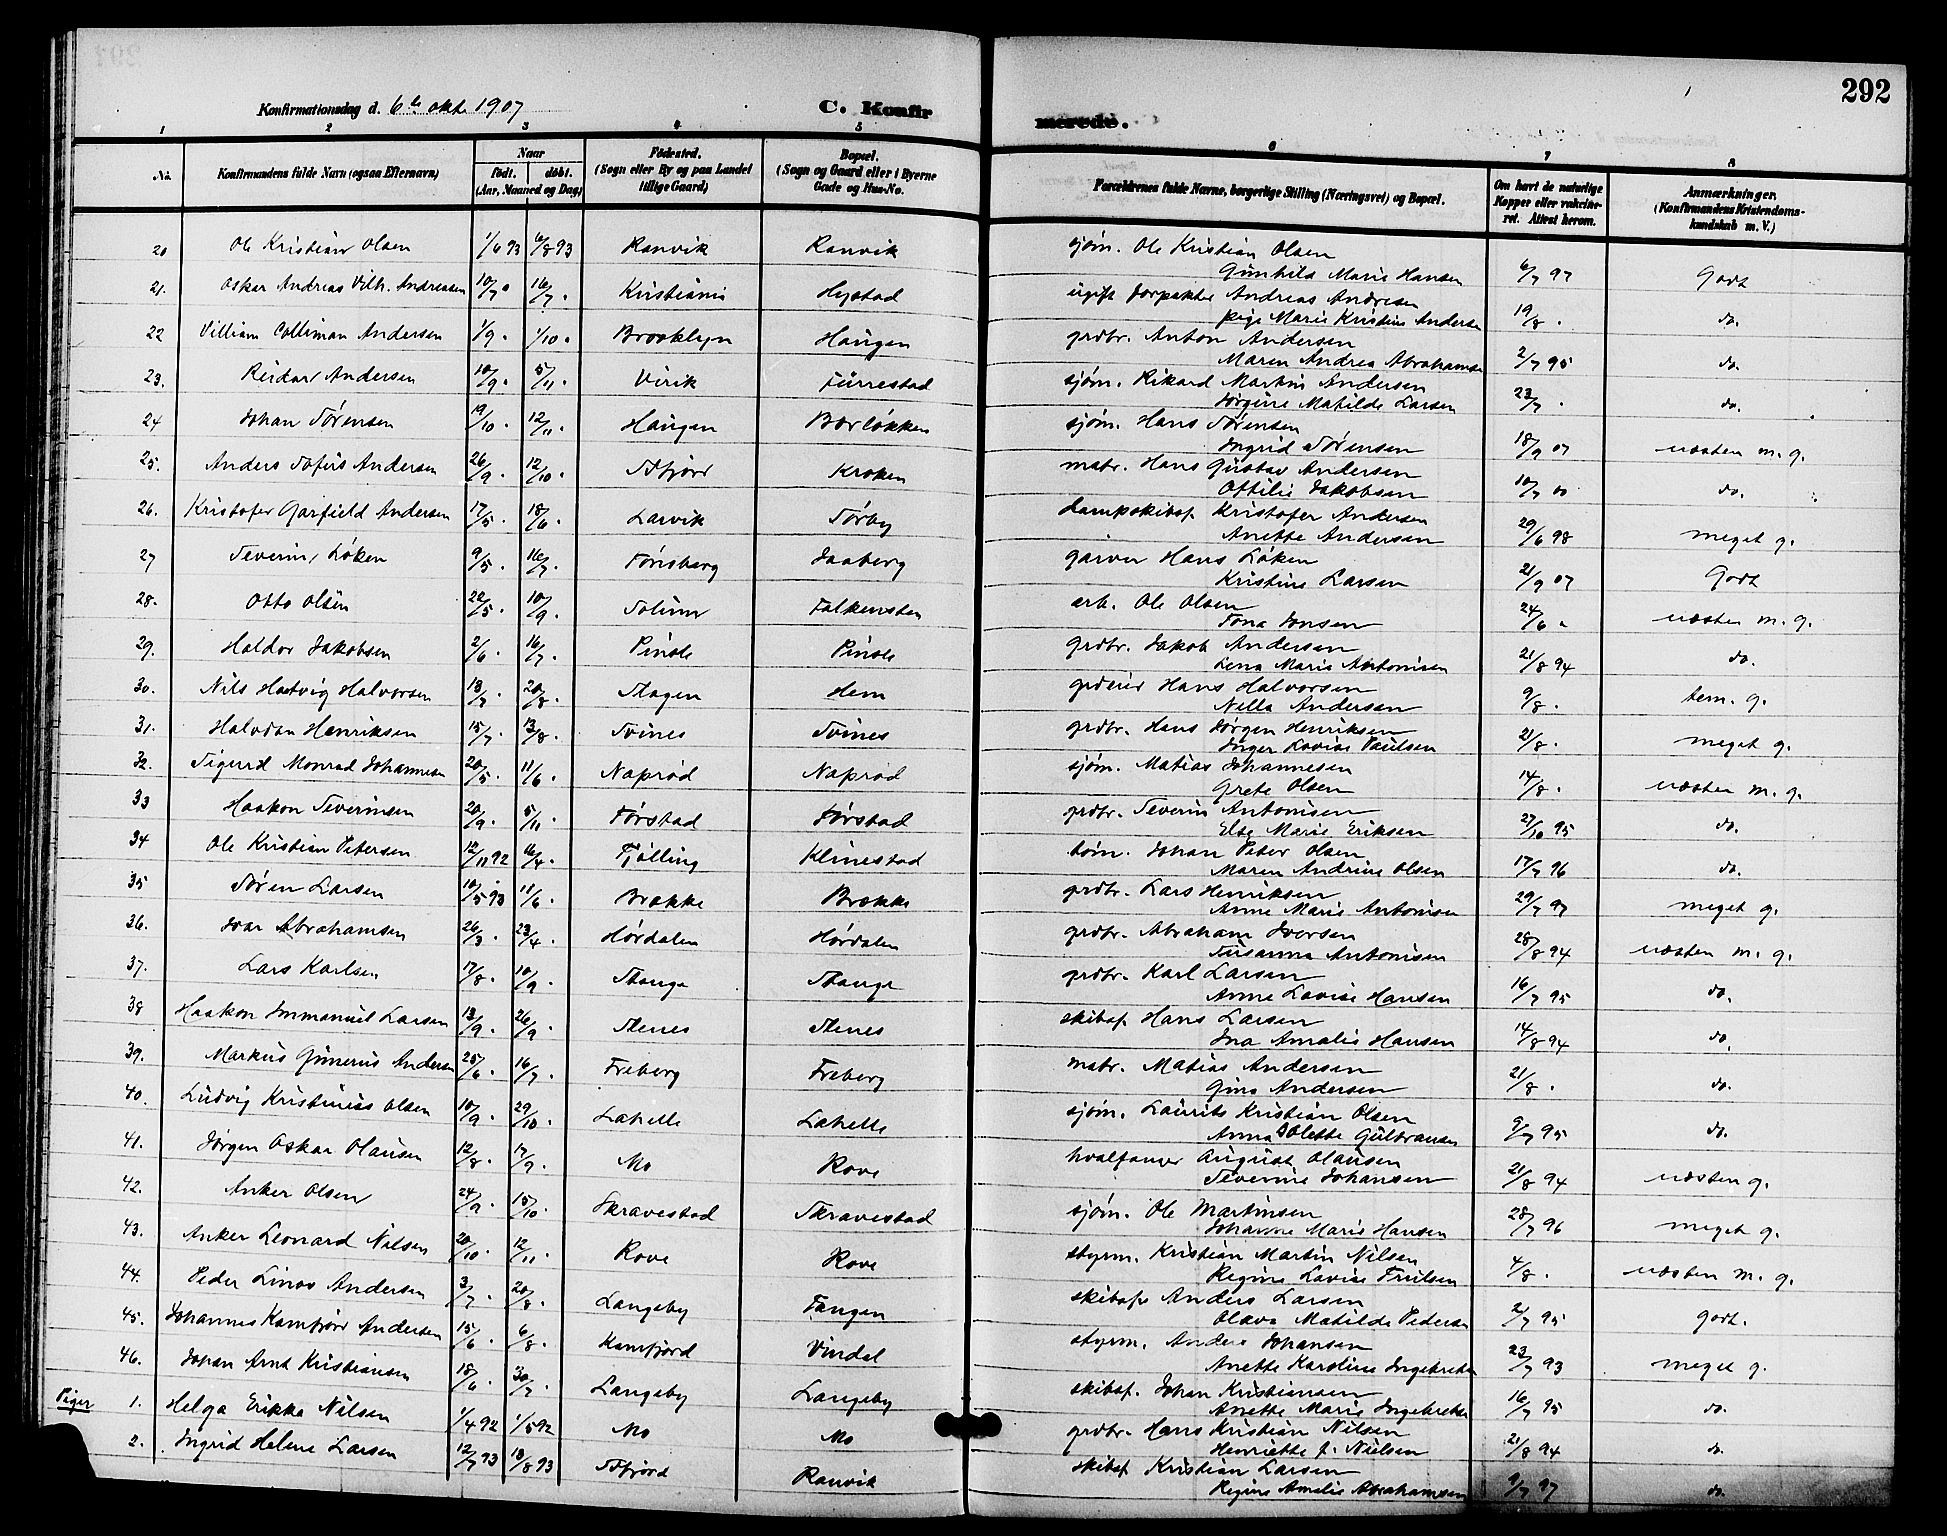 292
Konfirmationsdag d. 6te okt. 1907
C. Konfirmerede.
1 2 3 4 5 6 7 8
No. Konfirmandens fulde Navn (ogsaa Efternavn) Naar født. døbt. (Aar, Maaned og Dag) Fødested. (Sogn eller By og paa Landet tillige Gaard) Bopæl. (Sogn og Gaard eller i Byerne Gade og Hus-No. Forældrenes fulde Navne, borgerlige Stilling (Næringsvei) og Bopæl. Om havt de naturlige Kopper eller vakcineret. Attest herom. Anmærkninger. (Konfirmandens Kristendomskundskab m. V.)
20 Ole Kristian Olsen 1/6 93 6/8 93 Ranvik Ranvik sjøm. Ole Kristian Olsen
Gunhild Marie Hansen 6/7 97 Godt
21. Oskar Andreas Vilh. Andresen 10/7 " 16/7 . Kristiania Hystad ugift forpakter Andreas Andresen
pige Marie Kristine Andersen 19/8 . do.
22 Villiam Colliman Andersen 1/9 . 1/10 . Brooklyn Haugen grdbr. Anton Andersen
Maren Andrea Abrahamsen 2/7 95 do.
23. Reidar Andersen 10/9 . 5/11 . Virik Furrestad sjøm. Rikard Martin Andersen
Jørgine Matilde Larsen 23/7 . do.
24 Johan Sørensen 19/10 . 12/11 . Haugen Bærløkken sjøm. Hans Sørensen
Ingrid Sørensen 18/9 07 næsten m. g.
25. Anders Sofus Andersen 26/9 . 12/10 . Sfjord Kroken matr. Hans Gustav Andersen
Ottilie Jakobsen 10/7 00 do.
26. Kristofer Garfield Andersen 17/5 . 18/6 . Larvik Sørby dampskibsf. Kristofer Andersen
Anette Andersen 29/6 98 meget g.
27 Severin Løken 9/5 . 16/7 . Tønsberg Jaaberg garver Hans Løken
Kristine Larsen 21/9 07 Godt
28. Otto Olsen 22/5 . 10/9 . Solum Falkensten arb. Ole Olsen
Tona Jonsen 24/6 . næsten m. g.
29. Haldor Jakobsen 2/6 . 16/7 . Pinsle Pinsle grdbr. Jakob Andersen
Lena Marie Antonisen 21/8 94 do.
30. Nils Hartvig Halvorsen 13/7 . 20/8 . Slagen Hem grdeier Hans Halvorsen
Nilla Andersen 9/8 . tem. g.
31. Halvdan Henriksen 15/7 . 13/8 . Svines Svines grdbr. Hans Jørgen Henriksen
Inger Lovise Paulsen 21/8 . meget g.
32. Sigurd Monrad Johannesen 20/5 . 11/6 . Naprød Naprød sjøm. Matias Johannesen
Grete Olsen 14/8 . næsten m. g.
33 Haakon Severinsen 20/9 . 5/11 . Jørstad Jørstad grdbr. Severin Antonisen
Else Marie Eriksen 27/10 95 do.
34 Ole Kristian Petersen 12/11 92 16/4 . Tjølling Klinestad tøm. Johan Peter Olsen
Maren Andrine Olsen 17/7 96 do.
35 Søren Larsen 10/5 93 11/6 . Brekke Brekke grdbr. Lars Henriksen
Anne Marie Antonisen 29/7 97 meget g.
36. Ivar Abrahamsen 26/3 . 23/4 . Hørdalen Hørdalen grdbr. Abraham Iversen
Susanna Antonisen 28/8 94 næsten m. g.
37. Lars Karlsen 17/8 . 10/9 . Stange Stange grdbr. Karl Larsen
Anne Lovise Hansen 16/7 95 do.
38 Haakon Immanuel Larsen 13/9 . 26/9 . Stenes Stenes skibsf. Hans Larsen
Ina Amalie Hansen 14/8 94 do.
39. Markus Gunerius Andersen 25/6 . 16/7 . Freberg Freberg matr. Matias Andersen
Gina Andersen 21/8 . do.
40. Ludvig Kristinius Olsen 10/9 . 29/10 . Lahelle Lahelle sjøm. Laurits Kristian Olsen
Anna Olette Gulbransen 9/7 95 do.
41. Jørgen Oskar Olausen 12/8 . 17/9 . Mo Rove hvalfanger August Olausen
Severine Johansen 21/8 94 næsten g.
42. Anker Olsen 24/9 . 15/10 . Skravestad Skravestad sjøm. Ole Martinsen
Johanne Marie Hansen 28/7 96 meget g.
43. Anker Leonard Nilsen 20/10 . 12/11 . Rove Rove styrm. Kristian Martin Nilsen
Regine Lovise 4/8 . næsten m. g.
44. Peder Linos Andersen 3/7 . 20/8 . Langeby Tangen skibsf. Anders Larsen
Olava Matilde Pedersen 2/7 95 godt.
45. Johannes Kamfjord Andersen 15/6 . 6/8 . Kamfjord Vindal styrm. Anders Johansen
Anette Karoline Ingebretsen 23/7 93 meget g.
46. Johan Arnt Kristiansen 18/6 . 30/7 . Langeby Langeby skibsf. Johan Kristiansen
Anette Marie Ingebretsen 16/7 95 do.
Piger 1. Helga Erikka Nilsen 1/4 92 1/5 92 Mo Mo grdbr. Hans Kristian Nilsen
Henriette f. Nielsen 21/8 94 do.
2. Ingrid Helene Larsen 12/7 93 13/8 93 Sfjord Ranvik skibsf. Kristian Larsen
Regine Amalie Abrahamsen 9/7 97 do.